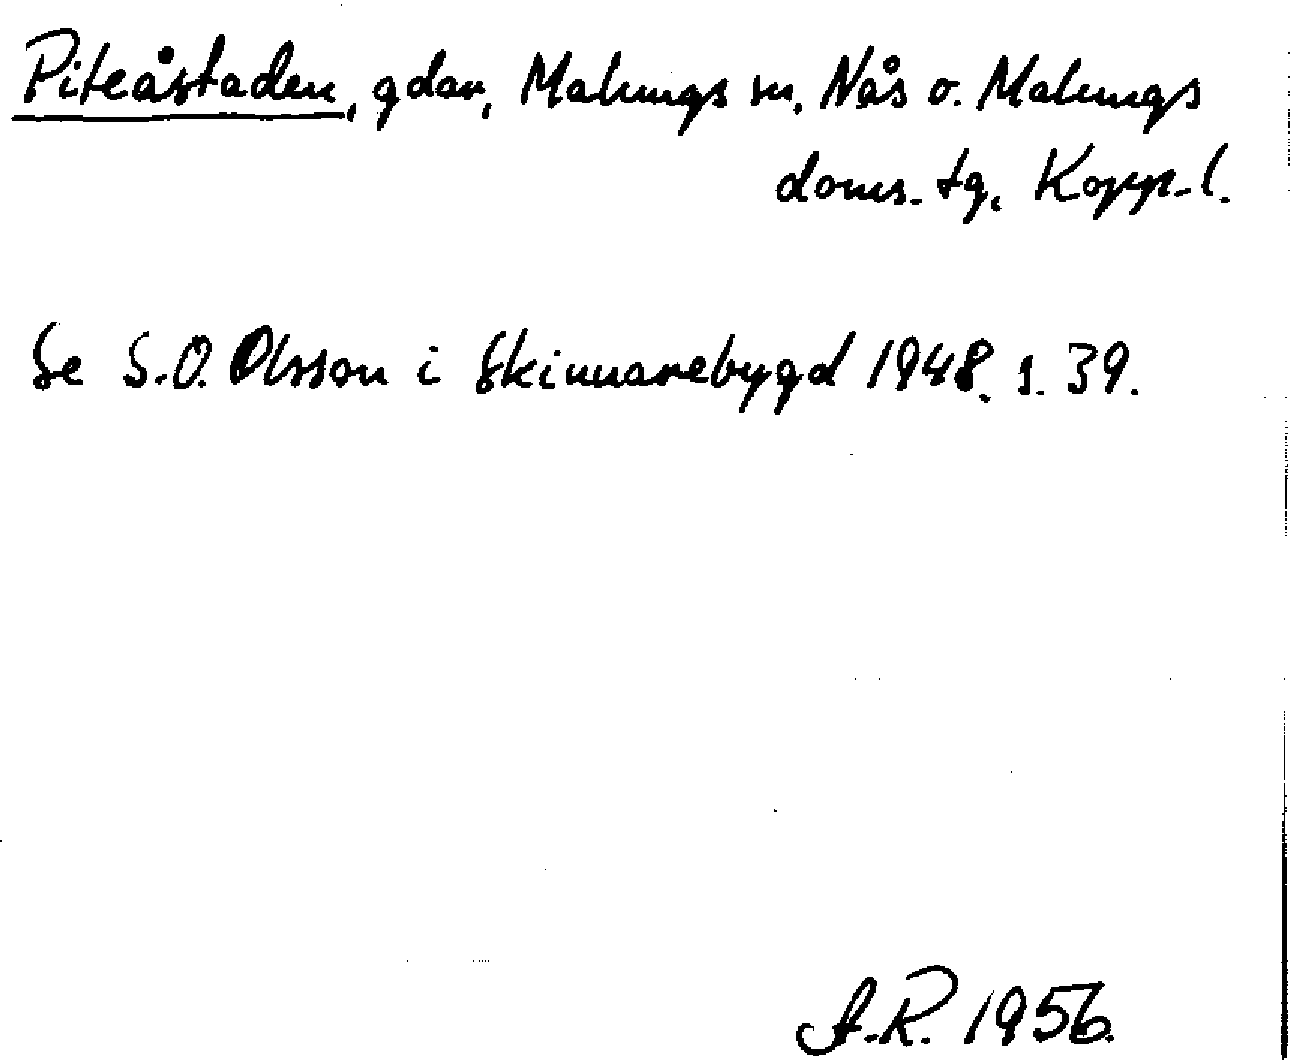 Piteåstaden, gdar, Malungs sn, Nås o. Malungs
doms. tg, Kopp. l.
Se S.O. Olsson i Skinnarebygd 1948. s. 39.
A.R. 1956.